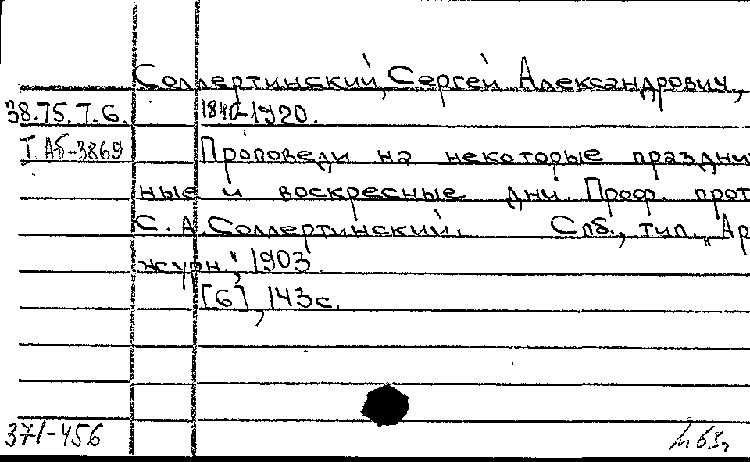 Соллертинский, Сергей Александрович,
38.75.7.6. 1840-1920.
Т Аб-3869 Проповеди на некоторые праздни
ные и воскресные дни. Проф. прот
С. А. Соллертинский. Спб., тип. „Ар
журн", 1903.
[6], 143 с.
371-456